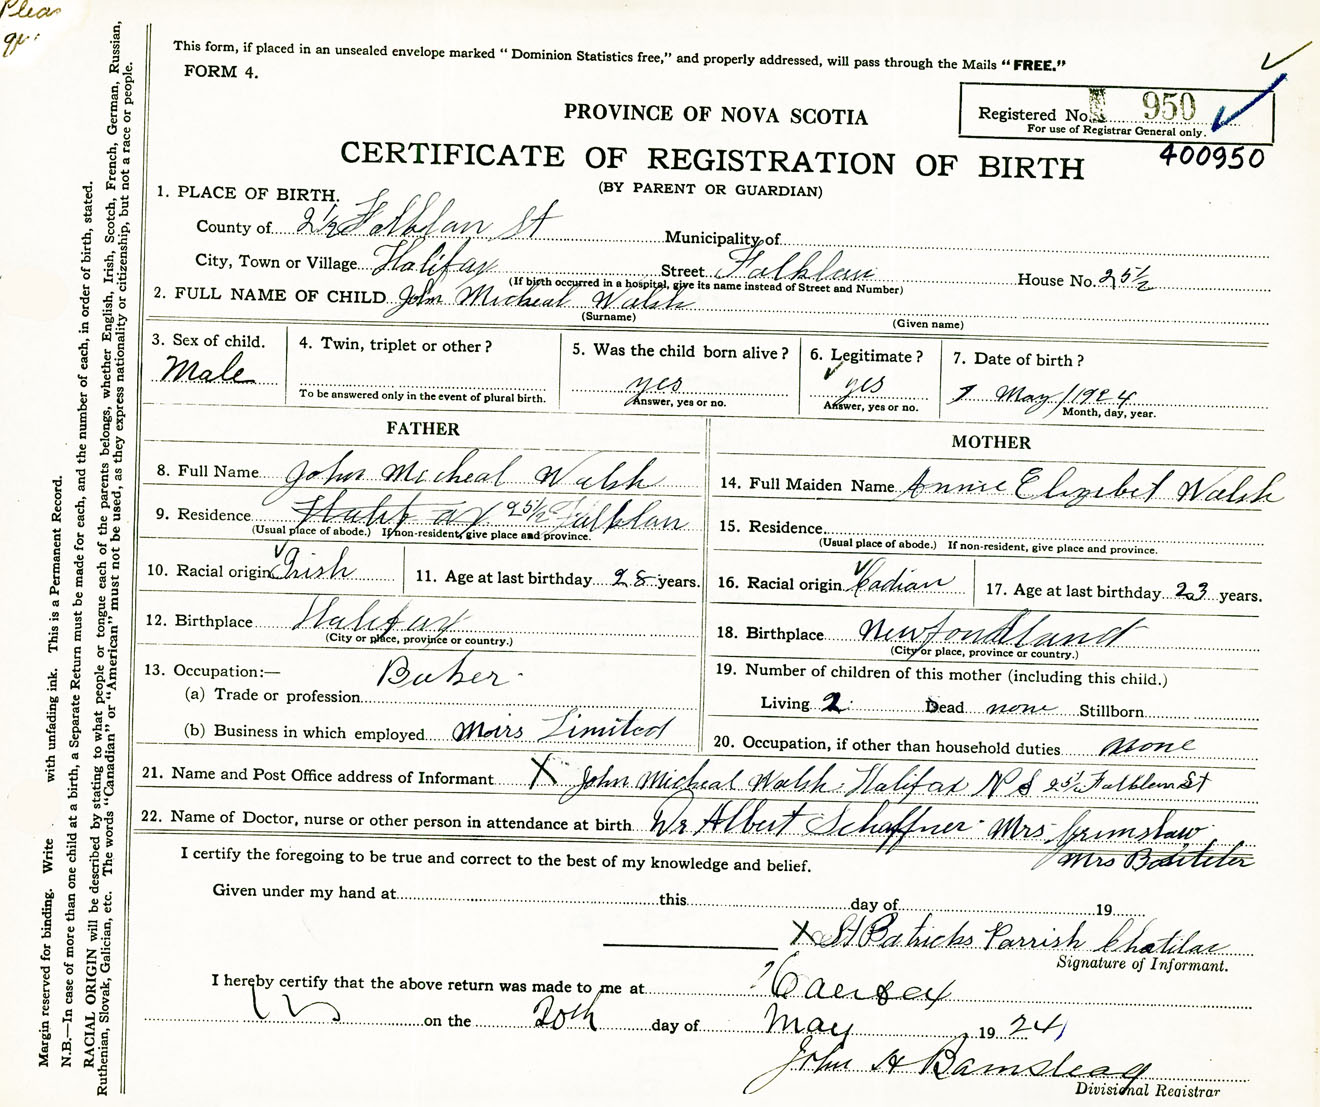 Pleas
This form, if placed in an unsealed envelope marked " Dominion Statistics free," and properly addressed, will pass through the Mails "FREE."
FORM 4.
Registered No. 950
For use of Registrar General only.
400950
PROVINCE OF NOVA SCOTIA
CERTIFICATE OF REGISTRATION OF BIRTH
(BY PARENT OR GUARDIAN)
1. PLACE OF BIRTH.
County of 2 1/2 Falklan St Municipality of
City, Town or Village Halifax Street Falklan House No. 25 1/2
(If birth occurred in a hospital, give its name instead of Street and Number)
2. FULL NAME OF CHILD John Micheal Walsh
(Surname) (Given name)
3. Sex of child. Male
4. Twin, triplet or other?
To be answered only in the event of plural birth.
5. Was the child born alive? yes
Answer, yes or no.
6. Legitimate? yes
Answer, yes or no.
7. Date of birth?
7 May / 1924
Month, day, year.
FATHER
8. Full Name John Micheal Walsh
9. Residence Halifax 25 1/2 Falklan
(Usual place of abode.) If non-resident, give place and province.
10. Racial origin Irish
11. Age at last birthday 28 years.
12. Birthplace Halifax
(City or place, province or country.)
13. Occupation:— Baker
(a) Trade or profession
(b) Business in which employed Moirs Limited
MOTHER
14. Full Maiden Name Annie Elizebet Walsh
15. Residence
(Usual place of abode.) If non-resident, give place and province.
16. Racial origin Cadian
17. Age at last birthday 23 years.
18. Birthplace Newfondland
(City or place, province or country.)
19. Number of children of this mother (including this child.)
Living 2 Dead none Stillborn
20. Occupation, if other than household duties none
21. Name and Post Office address of Informant X John Micheal Walsh Halifax N S 25 1/2 Falklan St
22. Name of Doctor, nurse or other person in attendance at birth Dr Albert Schaffner Mrs Grimshaw
Mrs
I certify the foregoing to be true and correct to the best of my knowledge and belief.
Given under my hand at this day of 19
X St Patricks Parrish
Signature of Informant.
I hereby certify that the above return was made to me at
on the 20th day of May 19 24
John H
Divisional Registrar
Margin reserved for binding. Write with unfading ink. This is a Permanent Record.
N.B.—In case of more than one child at a birth, a Separate Return must be made for each, and the number of each, in order of birth, stated.
RACIAL ORIGIN will be described by stating to what people or tongue each of the parents belongs, whether English, Irish, Scotch, French, German, Russian,
Ruthenian, Slovak, Galician, etc. The words "Canadian" or "American" must not be used, as they express nationality or citizenship, but not a race or people.